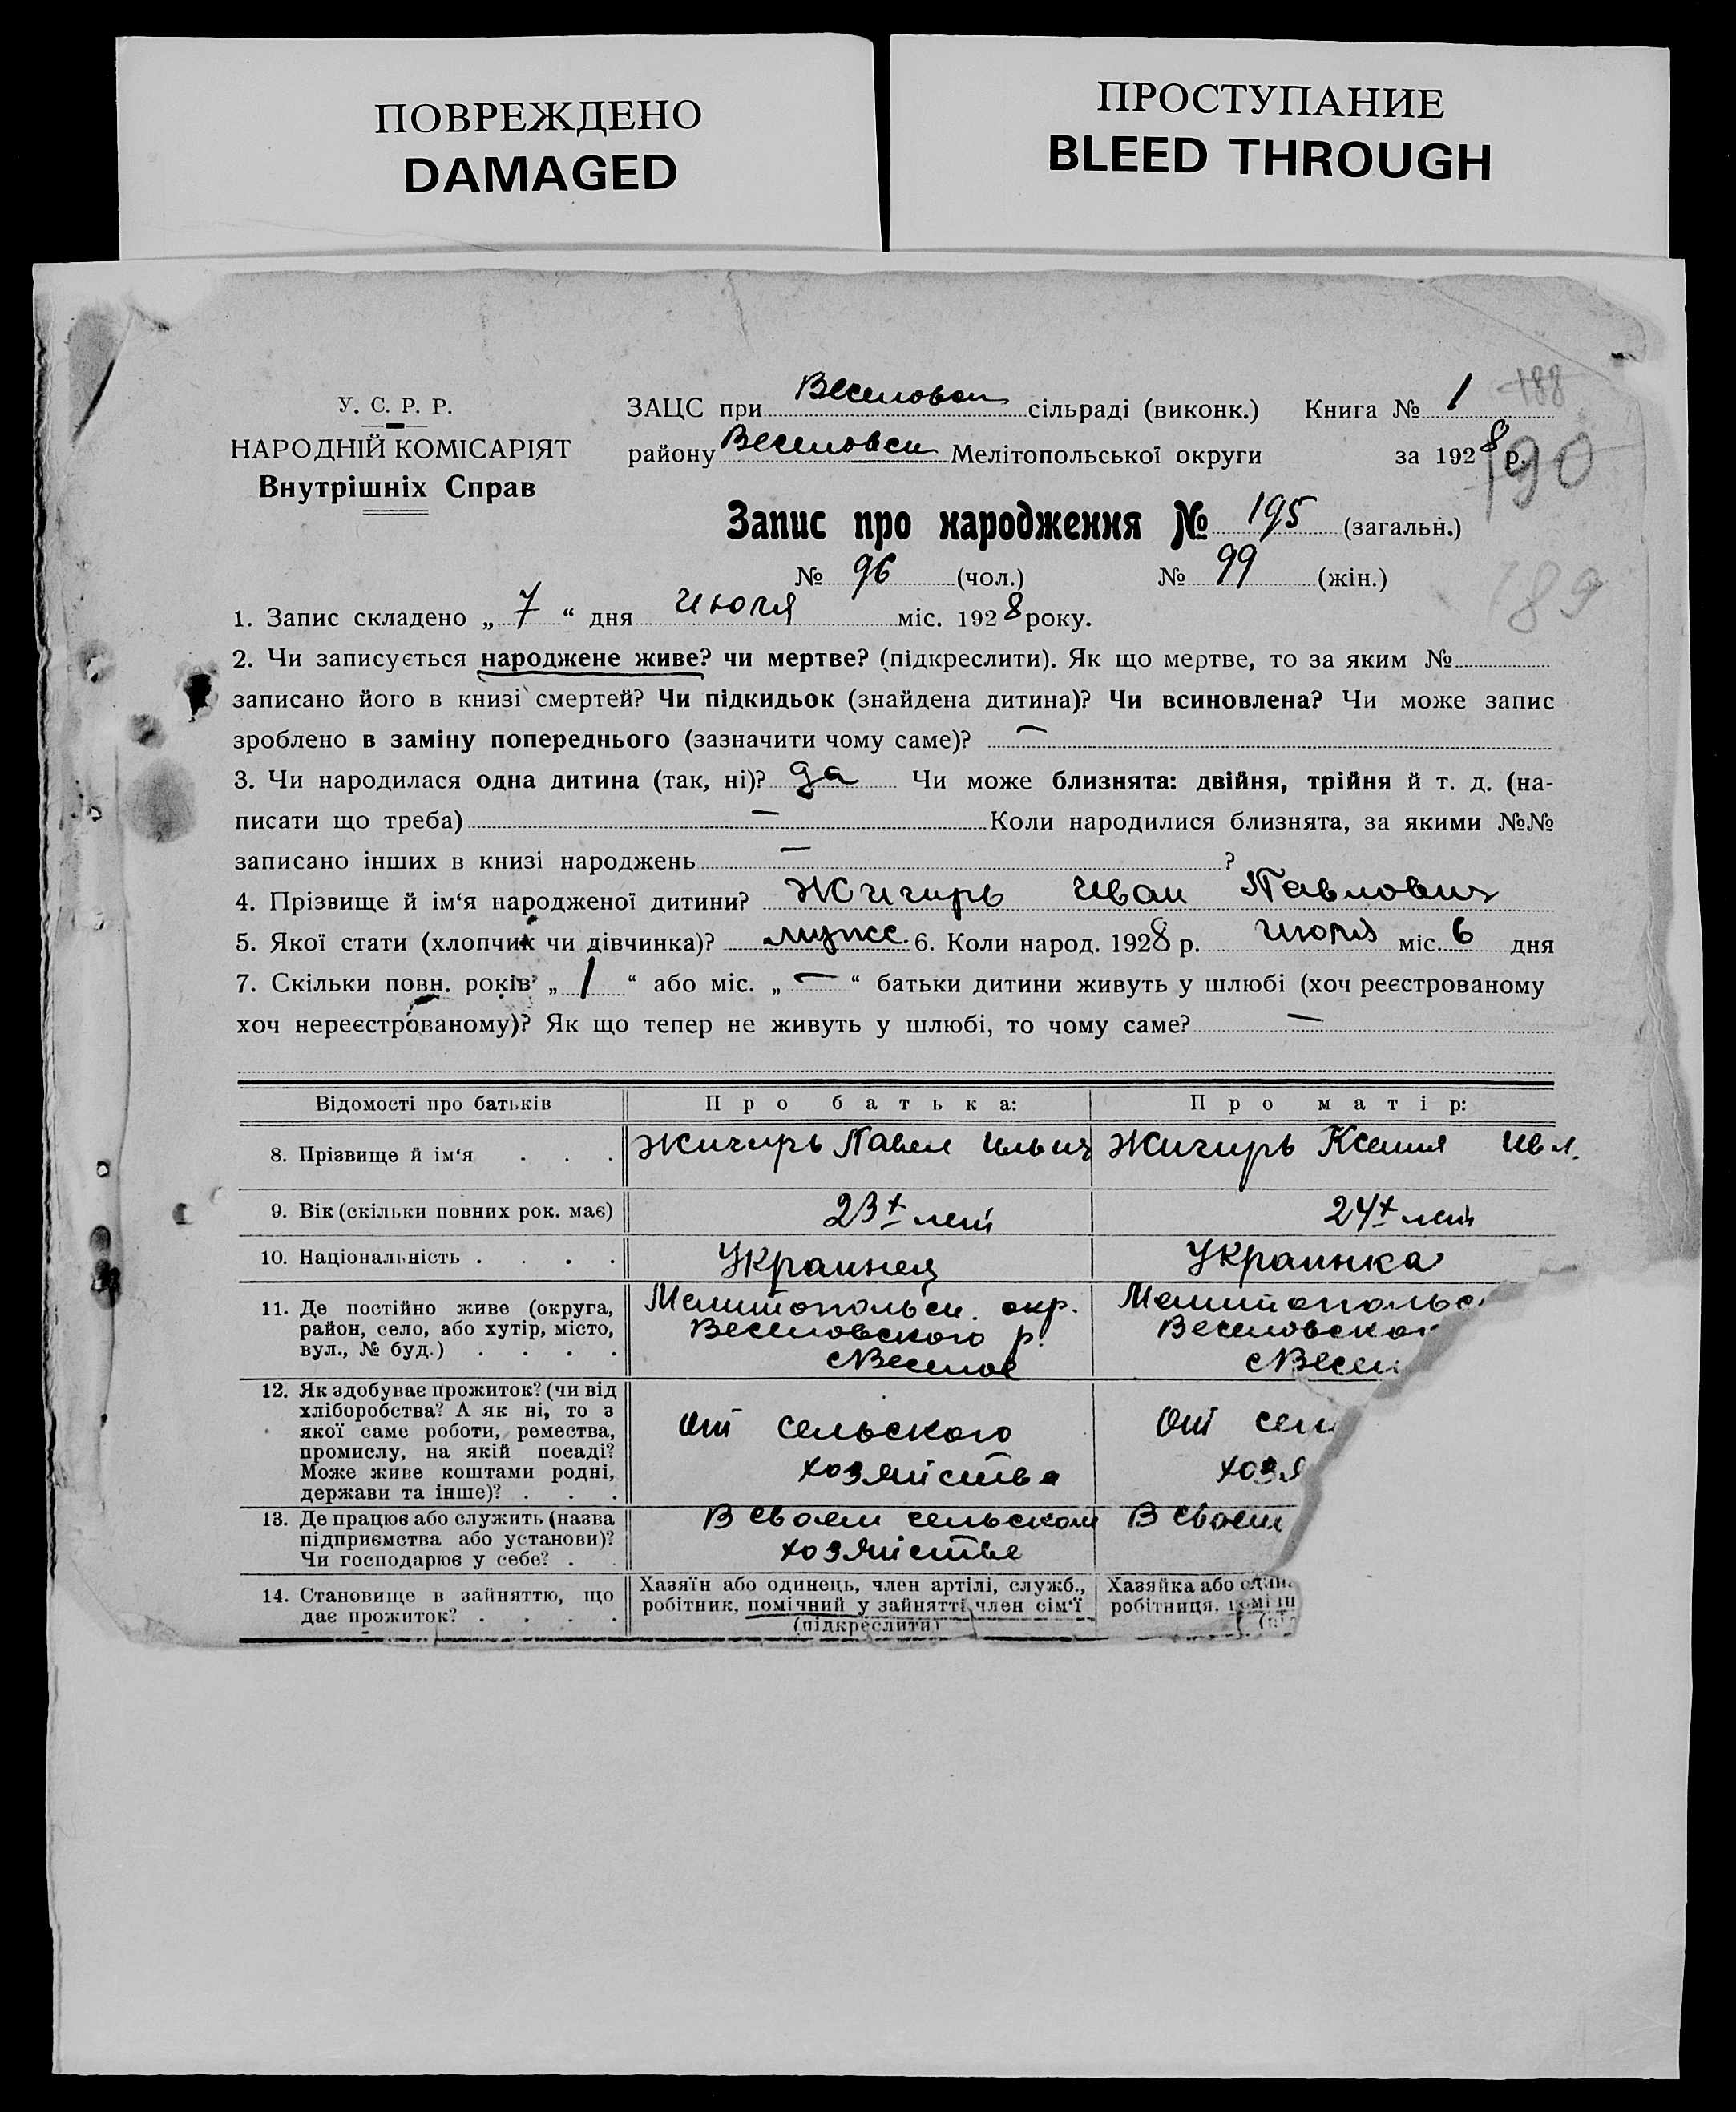 ПОВРЕЖДЕНО
DAMAGED
ПРОСТУПАНИЕ
BLEED THROUGH
У. С. Р. Р.
НАРОДНІЙ КОМІСАРІЯТ
Внутрішніх Справ
188
ЗАЦС при Веселовск сільраді (виконк.) Книга № 1
району Веселовск Мелітопольської округи за 1928 р.
190
Запис про народження № 195 (загальн.)
№ 96 (чол.) № 99 (жін.)
189
1. Запис складено „ 7 “ дня Июля міс. 1928 року.
2. Чи записується народжене живе? чи мертве? (підкреслити). Як що мертве, то за яким №
записано його в книзі смертей? Чи підкидьок (знайдена дитина)? Чи всиновлена? Чи може запис
зроблено в заміну попереднього (зазначити чому саме)? —
3. Чи народилася одна дитина (так, ні)? да Чи може близнята: двійня, трійня й т. д. (на-
писати що треба) — Коли народилися близнята, за якими №№
записано інших в книзі народжень — ?
4. Прізвище й ім‘я народженої дитини? Жигирь Иван Павлович
5. Якої стати (хлопчик чи дівчинка)? мужс. 6. Коли народ. 1928 р. Июля міс. 6 дня
7. Скільки повн. років „ 1 “ або міс. „ — “ батьки дитини живуть у шлюбі (хоч реєстрованому
хоч нереєстрованому)? Як що тепер не живуть у шлюбі, то чому саме? —
Відомості про батьків Про батька: Про матір:
8. Прізвище й ім‘я . . . Жигирь Павел Ильич Жигирь Ксения Ив
9. Вік (скільки повних рок. має) 23+ лет 24+ лет
10. Національність . . . . Украинец Украинка
11. Де постійно живе (округа,
район, село, або хутір, місто,
вул., № буд.) . . . .
Мелитопольск. окр.
Веселовского р.
с Веселое
Мелитопольс
Веселовског
с Весел
12. Як здобуває прожиток? (чи від
хліборобства? А як ні, то з
якої саме роботи, ремества,
промислу, на якій посаді?
Може живе коштами родні,
держави та інше)? . . .
От сельского
хозяйства
От сел
хозя
13. Де працює або служить (назва
підприємства або установи)?
Чи господарює у себе? .
В своем сельском
хозяйстве
В своем
14. Становище в зайняттю, що
дає прожиток? . . . .
Хазяїн або одинець, член артілі, служб.,
робітник, помічний у зайнятті член сім‘ї
(підкреслити)
Хазяйка або один
робітниця, поміч
(під